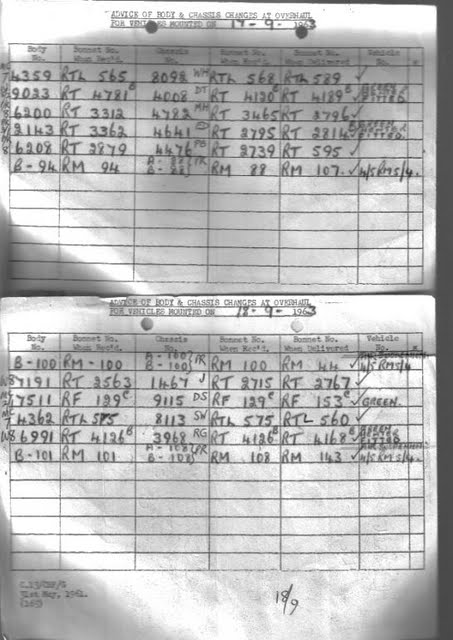 ADVICE OF BODY & CHASSIS CHANGES AT OVERHAUL
FOR VEHICLES MOUNTED ON 17-9-1963
Body No. Bonnet No. When Rec'd. Chassis No. Bonnet No. When Rec'd. Bonnet No. When Delivered Vehicle No. x
4359 RTL 565 8098 WH RTL 568 RTL 589 ✓
9023 RT 4781 E 4008 DT RT 4120 E RT 4189 E ✓ FITTED
6200 RT 3312 4782 MH RT 3465 RT 2796 ✓
2143 RT 3362 4641 RT 2795 RT 2814 ✓ FITTED
6208 RT 2879 4476 PB RT 2739 RT 595 ✓
B-94 RM 94 A-88 B-88 PR RM 88 RM 107 ✓ 4/5 RM5/4.
ADVICE OF BODY & CHASSIS CHANGES AT OVERHAUL
FOR VEHICLES MOUNTED ON 18-9-1963
Body No. Bonnet No. When Rec'd. Chassis No. Bonnet No. When Rec'd. Bonnet No. When Delivered Vehicle No. x
B-100 RM-100 A-100 B-100 PR RM 100 RM 44 ✓ 4/5 RM5/4.
W8 7191 RT 2563 1467 J RT 2715 RT 2767 ✓
7511 RF 129 C 9115 DS RF 129 C RF 153 C ✓ GREEN.
4362 RTL 575 8113 SW RTL 575 RTL 560 ✓
W8 6991 RT 4126 B 3968 RG RT 4126 B RT 4168 B ✓ FITTED
B-101 RM 101 A-108 B-108 PR RM 108 RM 143 ✓ 4/5 RM 5/4.
31st May, 1961.
(165)
18/9